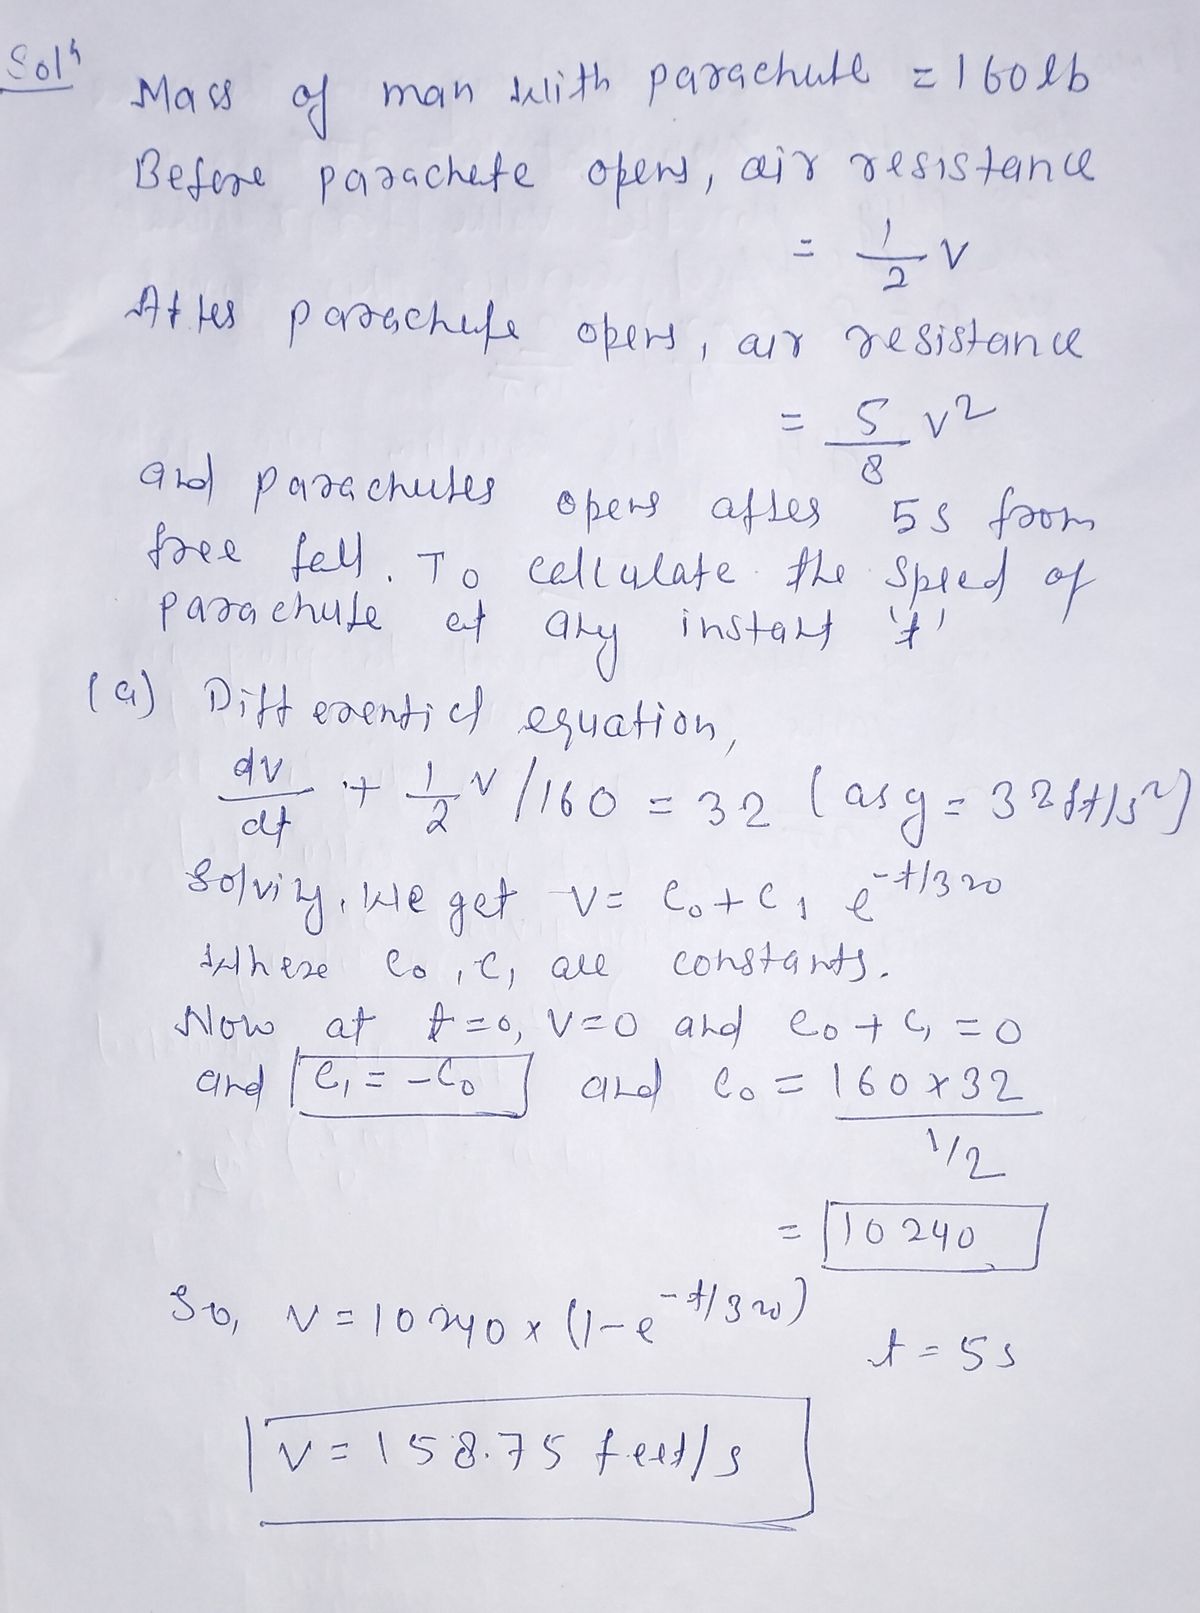 Solⁿ
Mass of man with parachute = 160 lb
Before parachute opens, air resistance
= 1/2 v
After parachute opens, air resistance
= 5/8 v²
and parachutes opens after 5s from
free fall. To calculate the speed of
parachute at any instant 't'
(a) Differential equation,
dv/dt + 1/2 v/160 = 32 (as g = 32 ft/s²)
Solving, we get v = C₀ + C₁ e^(-t/320)
where C₀, C₁ are constants.
Now at t=0, v=0 and C₀ + C₁ = 0
and C₁ = -C₀ and C₀ = (160 x 32)/(1/2)
= 10240
So, v = 10240 x (1-e^(-t/320))
t = 5s
v = 158.75 feet/s